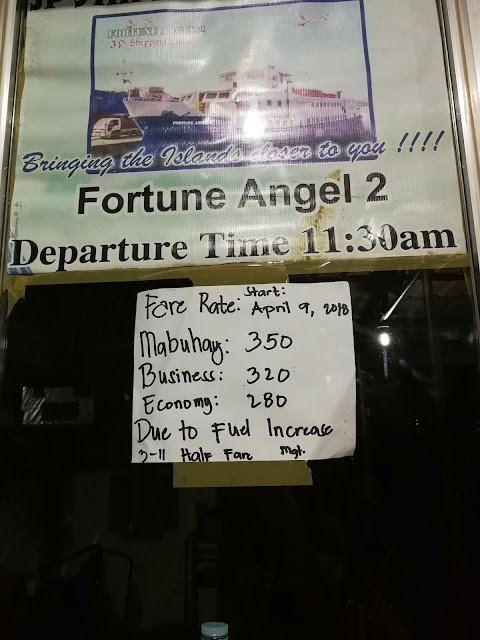 FORTUNE ANGEL 2
J.P. Shipping
FORTUNE ANGEL
Bringing the Islands closer to you !!!!
Fortune Angel 2
Departure Time 11:30am
Start:
Fare Rate: April 9, 2018
Mabuhay: 350
Business: 320
Economy: 280
Due to Fuel Increase
3-11 Half Fare Mgt.